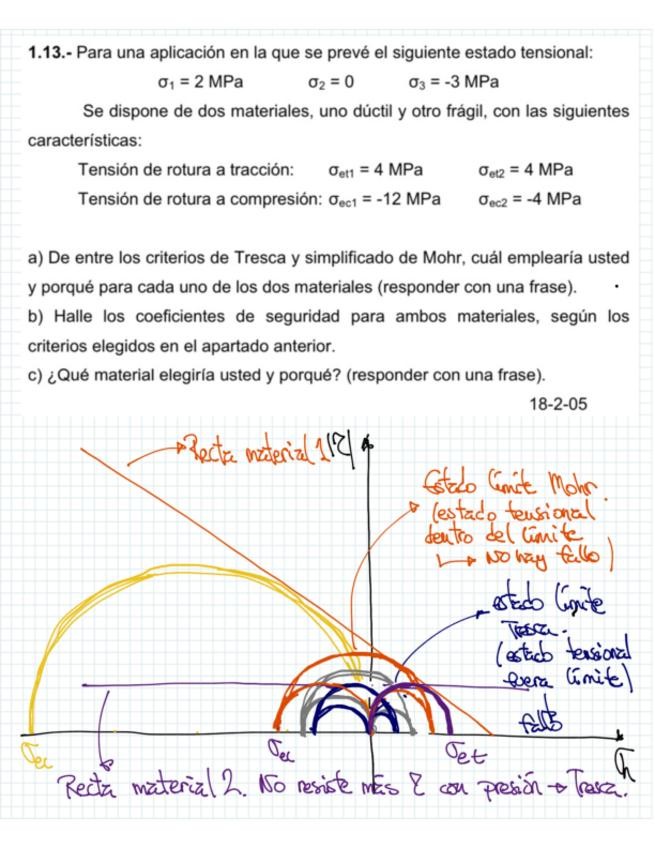 1.13.- Para una aplicación en la que se prevé el siguiente estado tensional:
σ1 = 2 MPa σ2 = 0 σ3 = -3 MPa
Se dispone de dos materiales, uno dúctil y otro frágil, con las siguientes
características:
Tensión de rotura a tracción: σet1 = 4 MPa σet2 = 4 MPa
Tensión de rotura a compresión: σec1 = -12 MPa σec2 = -4 MPa
a) De entre los criterios de Tresca y simplificado de Mohr, cuál emplearía usted
y porqué para cada uno de los dos materiales (responder con una frase).
b) Halle los coeficientes de seguridad para ambos materiales, según los
criterios elegidos en el apartado anterior.
c) ¿Qué material elegiría usted y porqué? (responder con una frase).
18-2-05
Recta material 1 |τ|
Estado límite Mohr.
(estado tensional
dentro del límite
↳ No hay fallo)
estado límite
Tresca.
(estado tensional
fuera límite)
fallo
σec σec σet σn
Recta material 2. No resiste más τ con presión → Tresca.